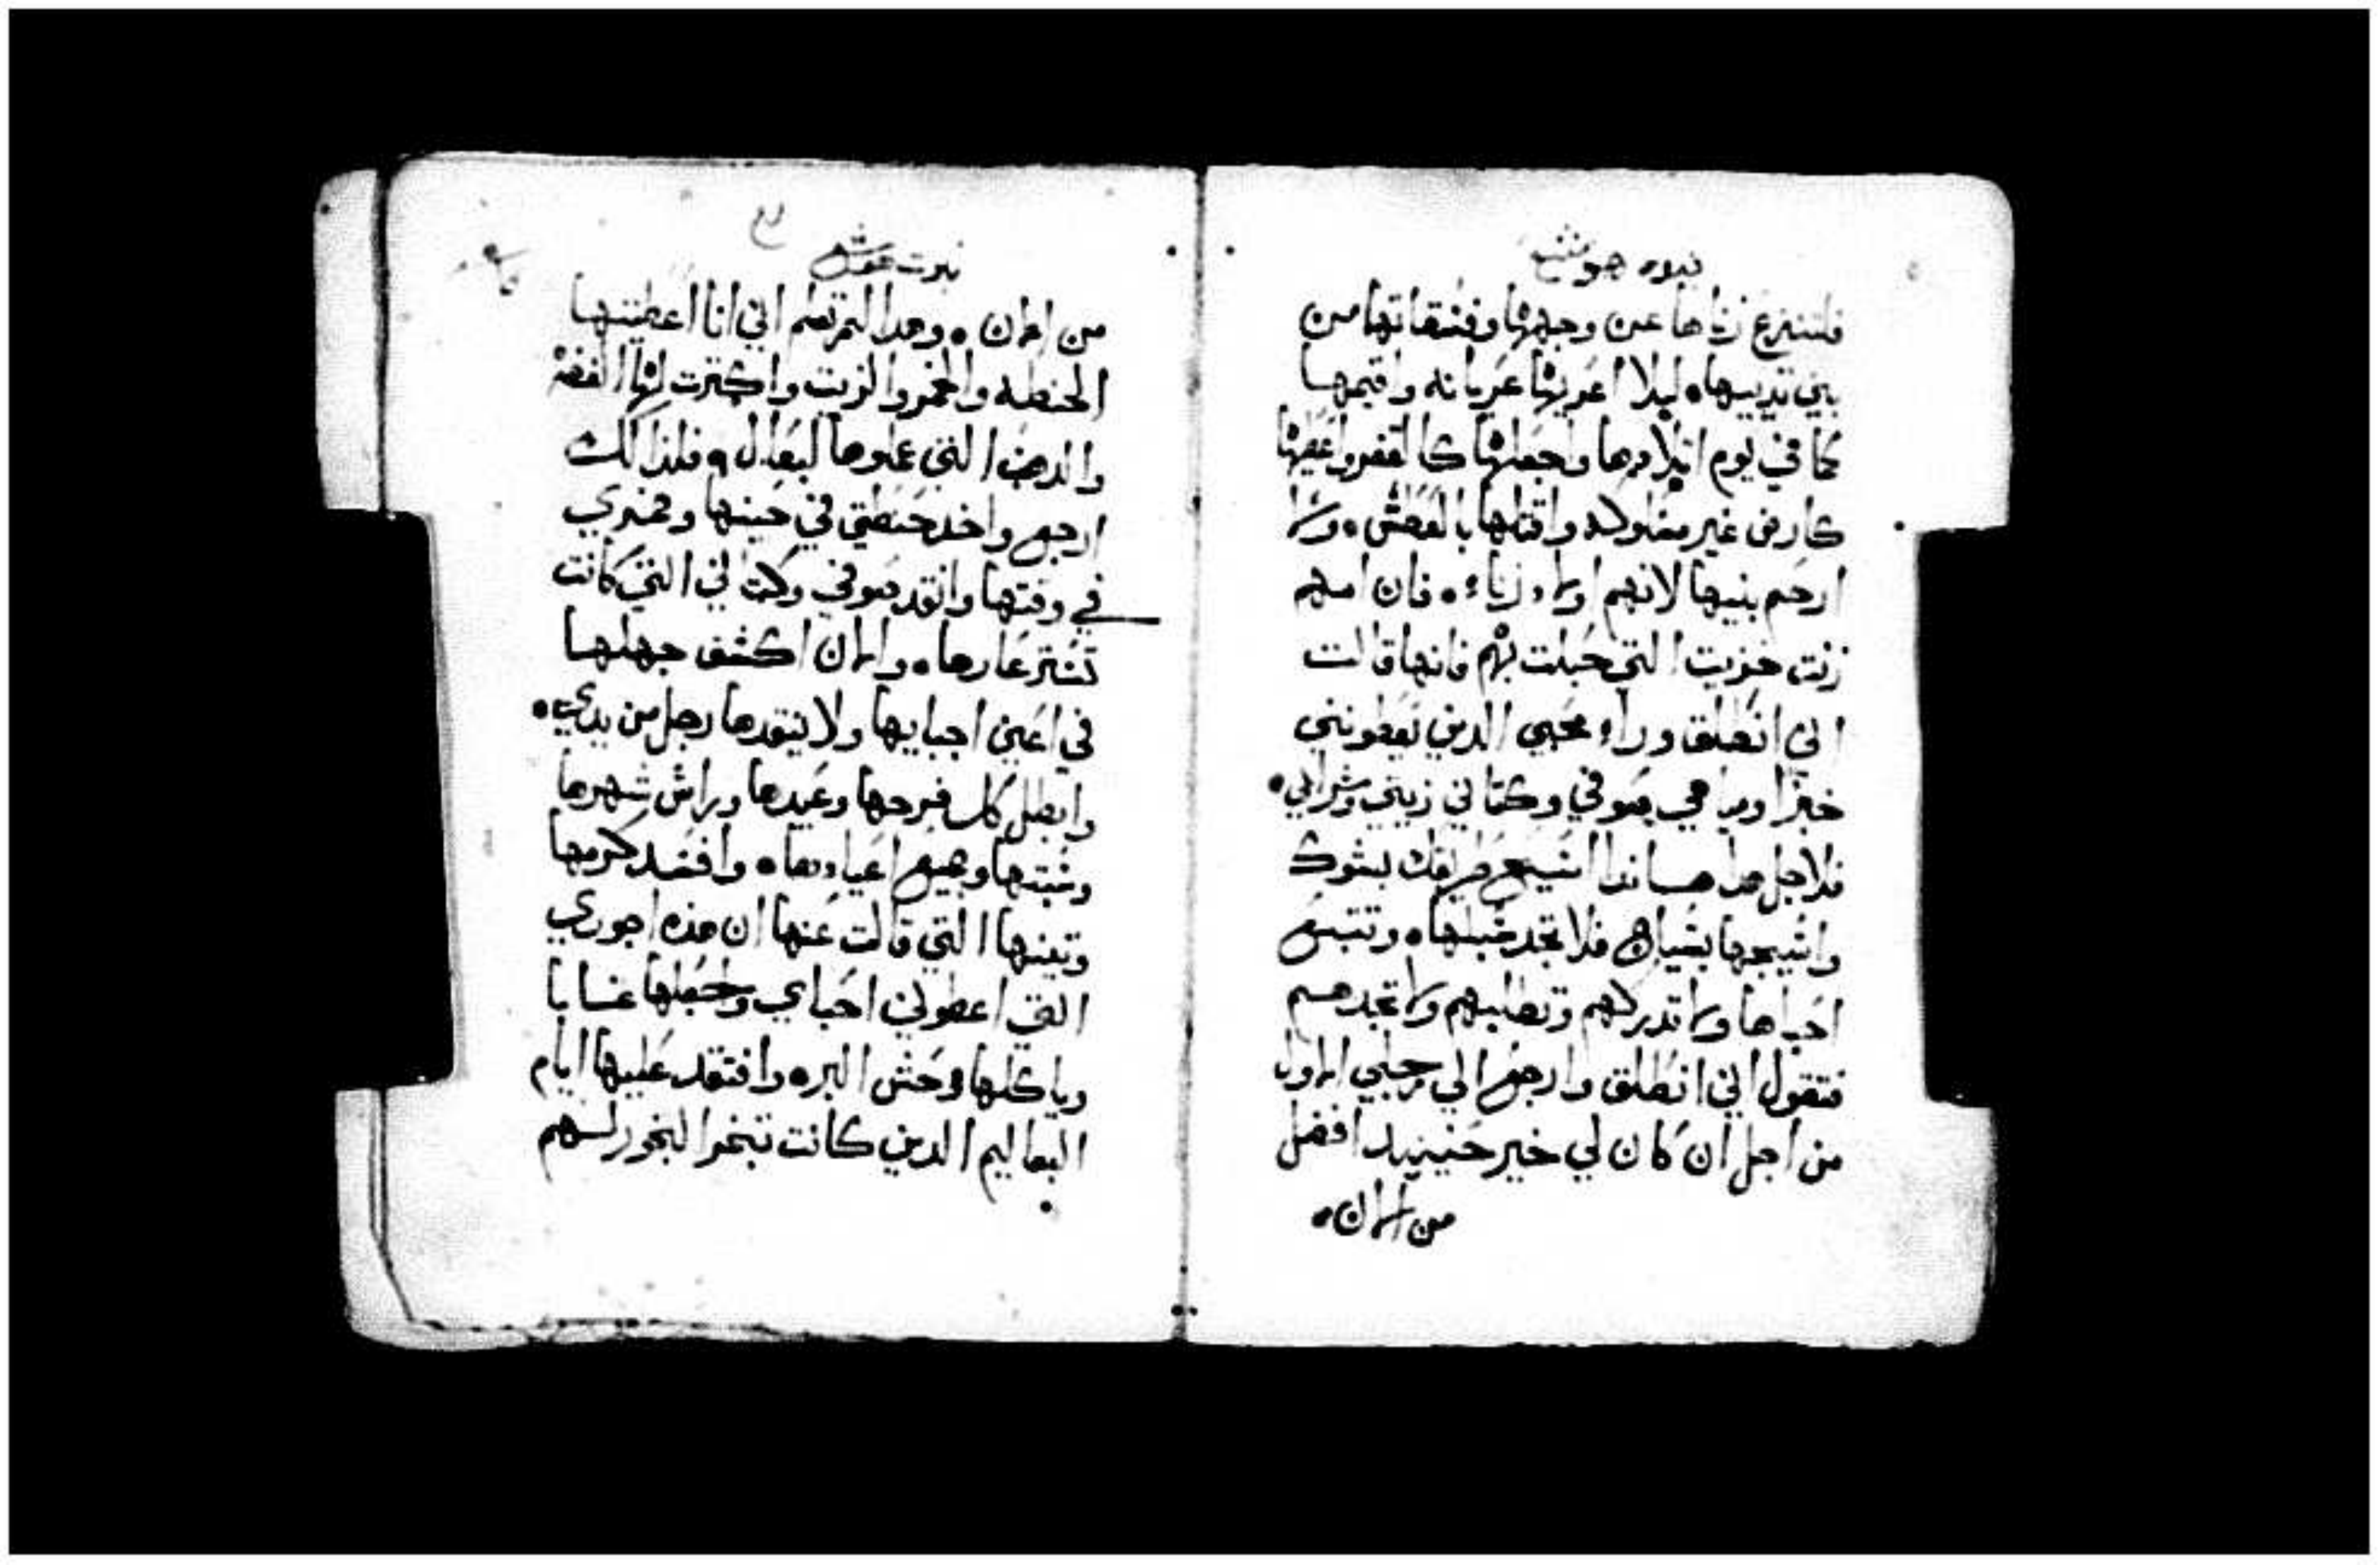 نبوه هوشع
فلتنزع زناها عن وجهها وفسقاتها من
بين تدييها• ليلا اعريها عريانه واقيمها
كما في يوم ايلادها واجعلها كالقفر واعطيها
كارض غير مفلوكه واقتلها بالعطش• ولا
ارحم بنيها لانهم اولاد زناء• فان امهم
زنت خزيت التي حبلت بهم فانها قالت
اني انطلق وراء محبي الدين يعطونني
خبزا ومياهي صوفي وكتاني زيتي وشرابي•
فلاجل هدا هاندا اسيج طريقك بشوك
واسيجها بسياج فلا تجد سبيلها• وتتبع
احباها ولا تدركهم وتطلبهم ولا تجدهم
فتقول اني انطلق وارجع الي رجلي الاول
من اجل ان كان لي خير حينيد افضل
من الان•
نبوت هوشع
من الان• وهدا لم تعلم اني انا اعطيتها
الحنطه والخمر والزيت واكترت لها الفضة
والدهب التي عملوها لبعال• فلذالك
ارجع واخد حنطتي في حينها وخمري
في وقتها وانقد صوفي وكتاني التي كانت
تستر عارها• والان اكشف جهلها
في اعين احبايها ولا ينقدها رجل من يدي•
وابطل كل فرحها وعيدها وراس شهرها
وسبتها وجميع اعيادها• وافسد كرمها
وتينها التي قالت عنها ان هذه اجوري
التي اعطوني احباي واجعلها عسابا
وياكلها وحش البر• وافتقد عليها ايام
البعاليم الدين كانت تبخر البخور لهم